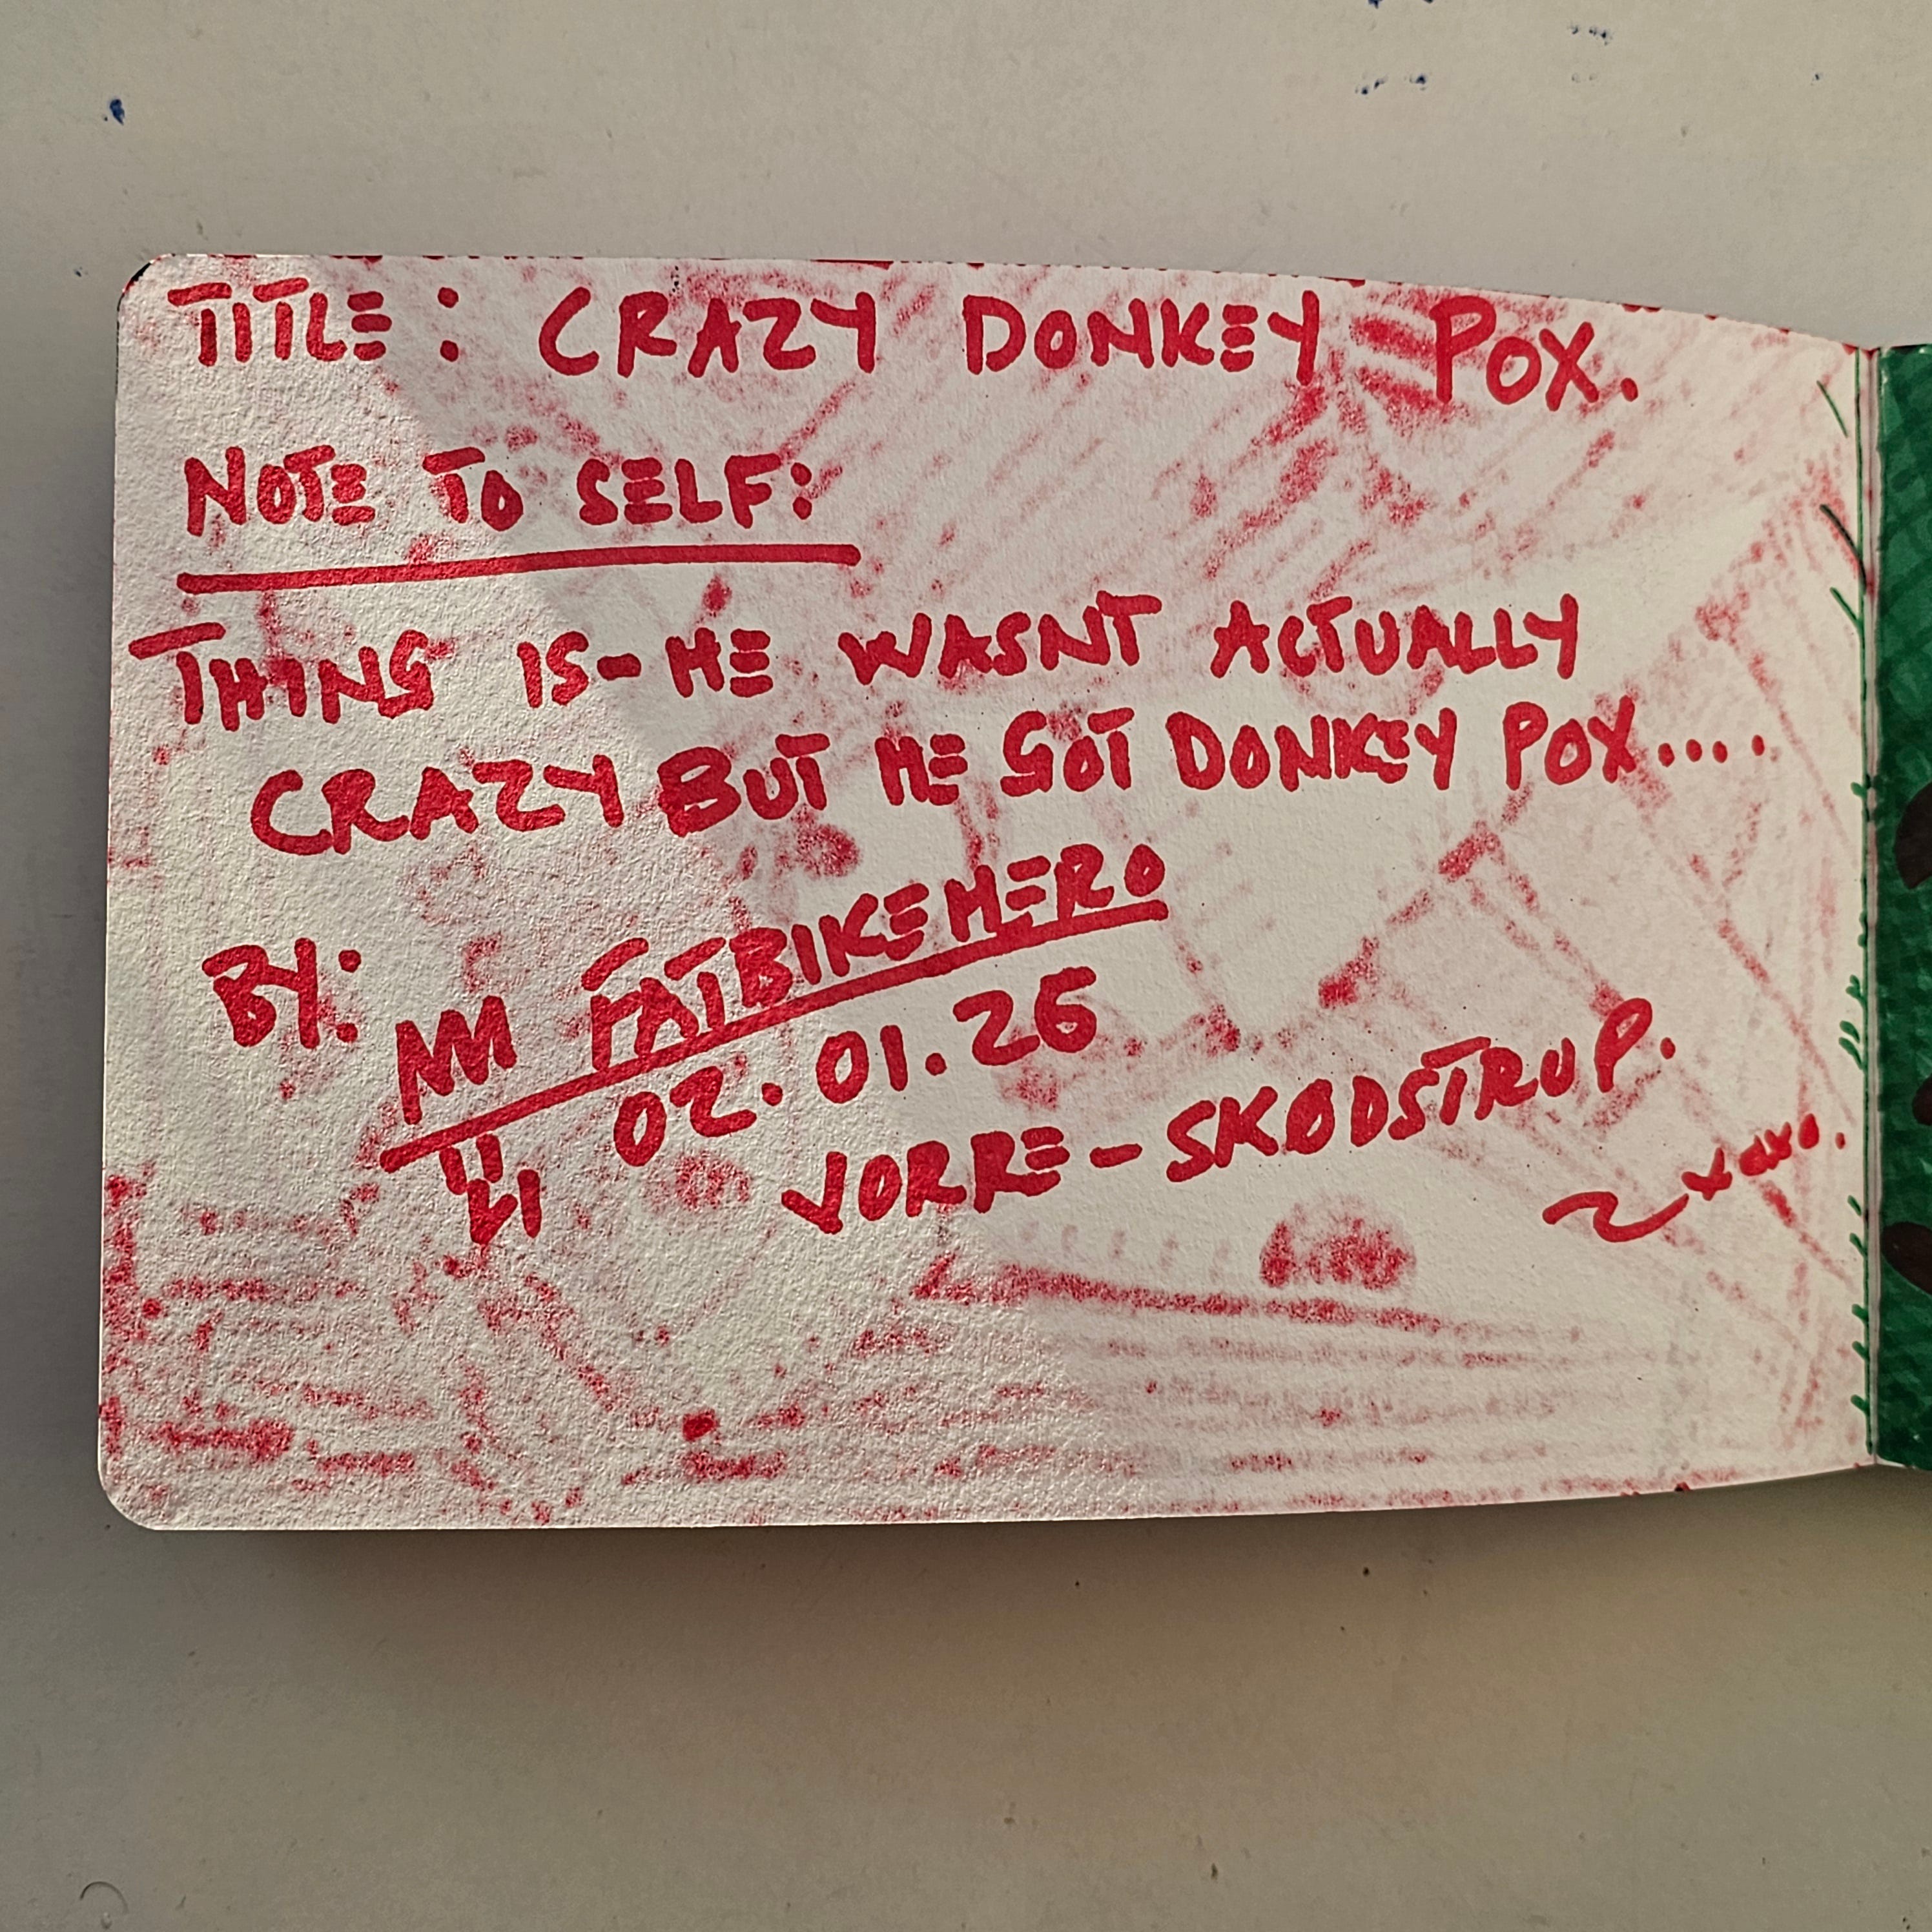 TITLE: CRAZY DONKEY POX.
NOTE TO SELF:
THING IS-HE WASNT ACTUALLY
CRAZY BUT HE GOT DONKEY POX....
BY: FATBIKEHERO
02.01.26
VORRE-SKØDSTRUP.